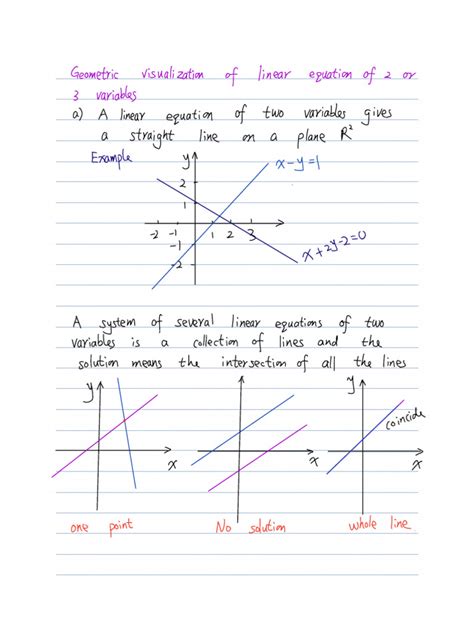 Geometric visualization of linear equation of 2 or
3 variables
a) A linear equation of two variables gives
a straight line on a plane R²
Example
y
x-y=1
2
1
-2 -1 1 2 3
-1
-2
x+2y-2=0
A system of several linear equations of two
variables is a collection of lines and the
solution means the intersection of all the lines
y y
coincide
x x x
one point No solution whole line